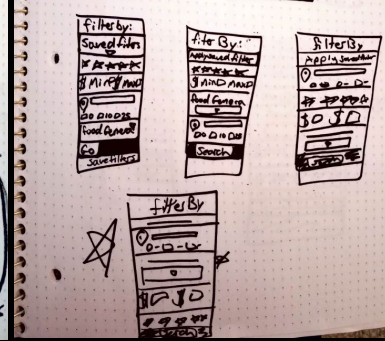 filter by:
Saved filters
$ Min $ Max
Food General
Go
Save filters
filter By:
Apply saved filter
$ Min Max
Food General
Search
filter By
Apply saved filter
$ $
Search
filter By
$ $
Search